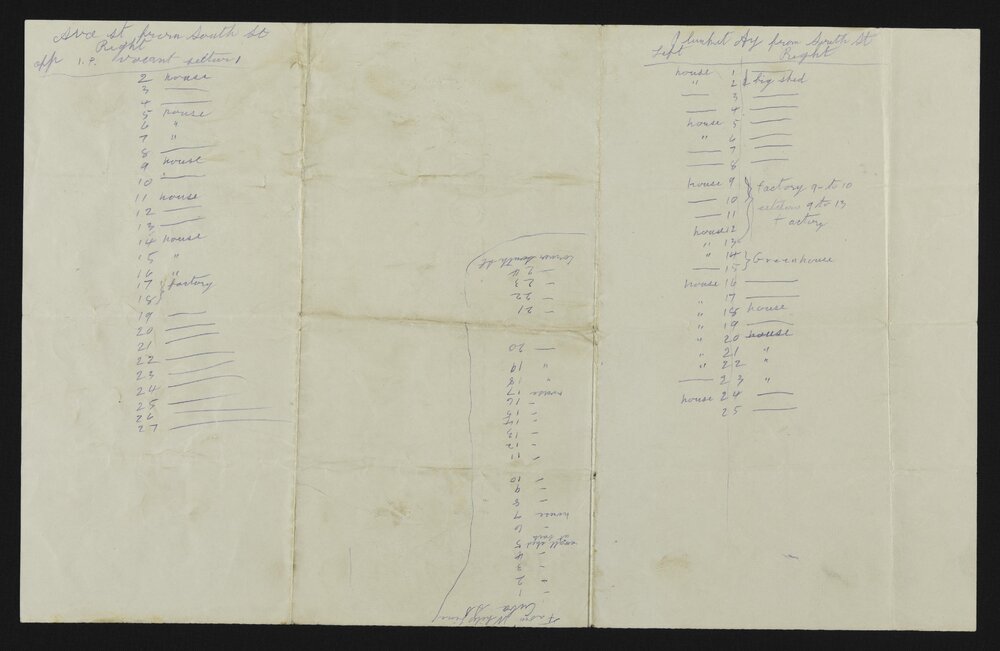 st from South St
Right
opp 1. P. Vacant
2 house
3 —
4 —
5 house
6 "
7 "
8 —
9 house
10 —
11 house
12 —
13 —
14 house
15 "
16 "
17 } factory
18 }
19 —
20 —
21 —
22 —
23 —
24 —
25 —
26 —
27 —
From
Cuba St
1 —
2 "
3 —
4 —
5 small shed at back
6 —
7 house
8 —
9 —
10 —
11 —
12 —
13 —
14 —
15 —
16 —
17 house
18 "
19 "
20 —
21 —
22 —
23 —
24 —
corner South St
Plunket Av from South St
Left Right
house 1 —
" 2 { big shed
— 3 —
— 4 —
house 5 —
" 6 —
— 7 —
— 8 —
house 9 } factory 9 to 10
— 10 9 to 13
— 11 Factory
house 12
" 13
" 14 } Greenhouse
— 15 }
house 16 —
" 17 —
" 18 house
" 19 —
" 20 house
" 21 "
" 22 "
— 23 "
house 24 —
25 —